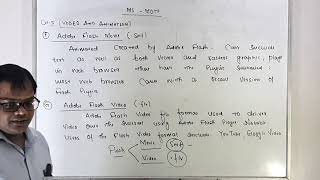 Ch-5 (VIDEO AND ANIMATION)
① Adobe Flash Movie (.swf)
Animation Created by Adobe Flash. Can include
text as well as both vector and raster graphic, plays
in web browser that have the Plugin installed
web browser Came with a recent version of
Flash Plugin.
② Adobe Flash Video (.flv)
Adobe Flash Video file format used to deliver
Video over the internet using Adobe Flash Player
Users of the Flash Video format include YouTube Google Video
Flash Movie Swf
Video .flv